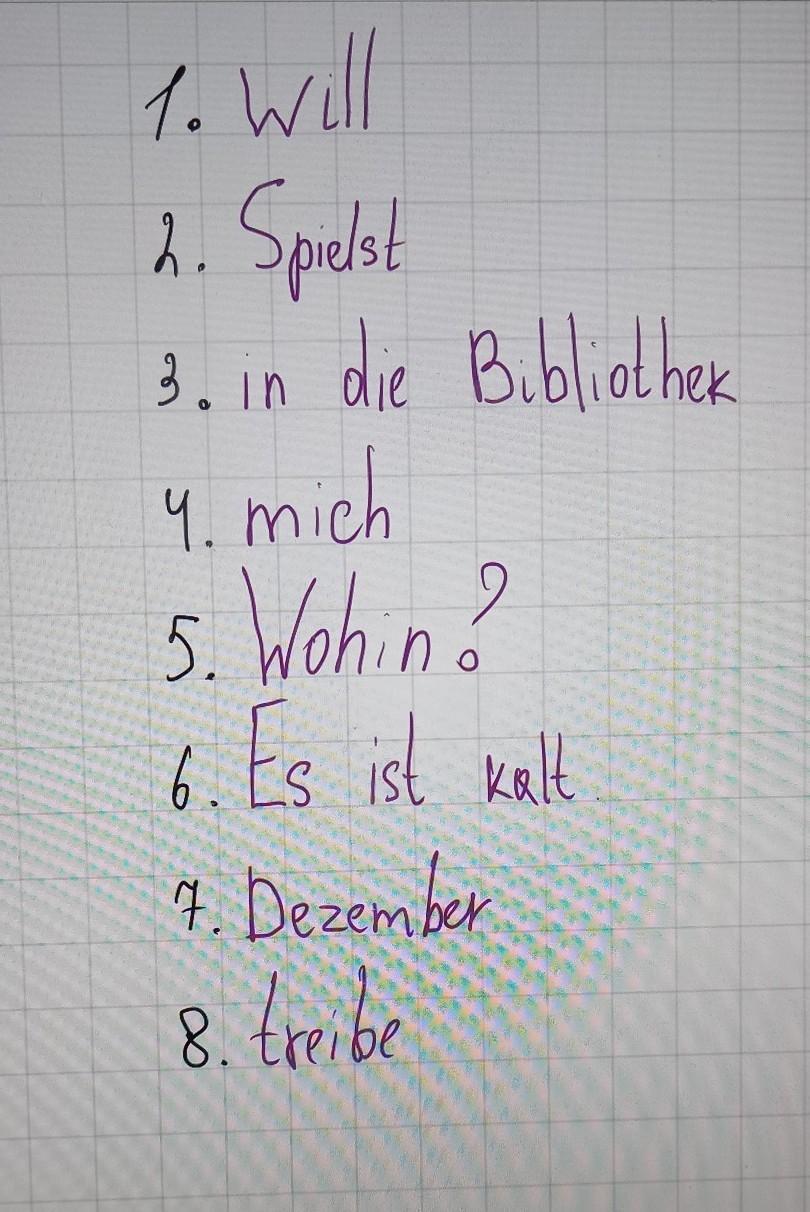 1. Will
2. Spielst
3. in die Bibliothek
4. mich
5. Wohin?
6. Es ist kalt.
7. Dezember
8. treibe